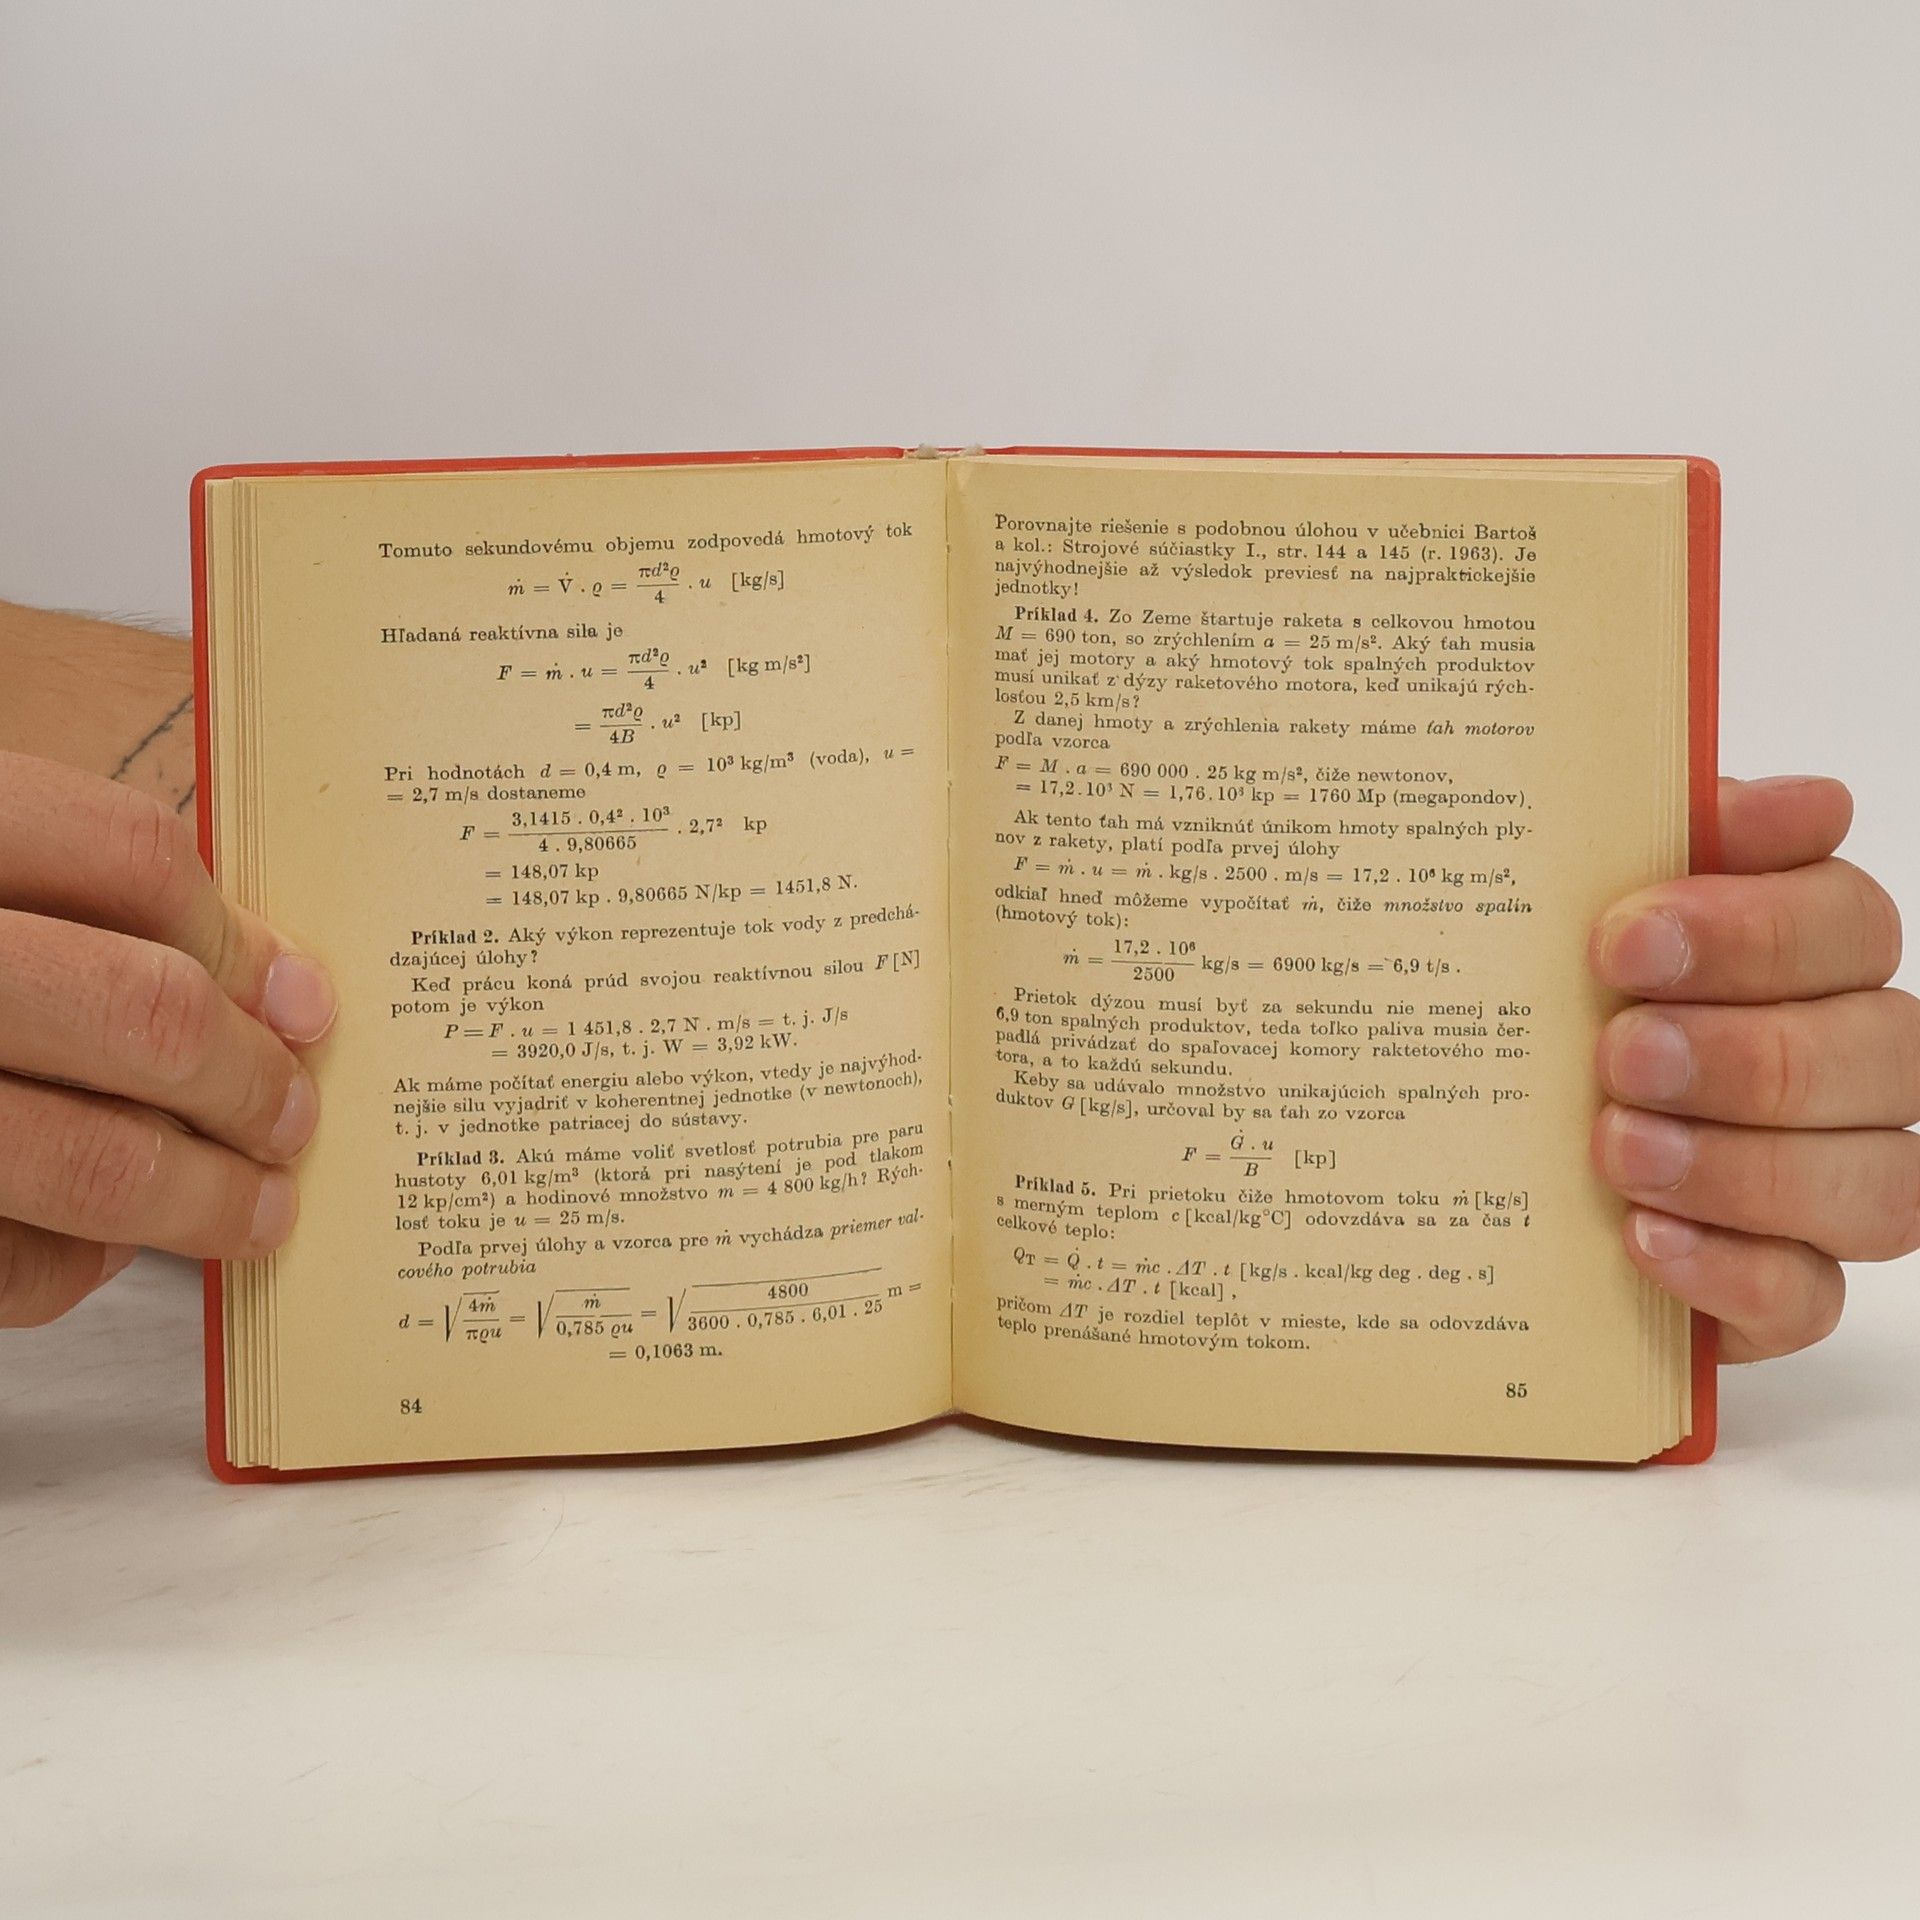 Tomuto sekundovému objemu zodpovedá hmotový tok
ṁ = V̇ . ϱ = πd²ϱ/4 . u [kg/s]
Hľadaná reaktívna sila je
F = ṁ . u = πd²ϱ/4 . u² [kg m/s²]
= πd²ϱ/4B . u² [kp]
Pri hodnotách d = 0,4 m, ϱ = 10³ kg/m³ (voda), u =
= 2,7 m/s dostaneme
F = 3,1415 . 0,4² . 10³/4 . 9,80665 . 2,7² kp
= 148,07 kp
= 148,07 kp . 9,80665 N/kp = 1451,8 N.
Príklad 2. Aký výkon reprezentuje tok vody z predchá-
dzajúcej úlohy?
Keď prácu koná prúd svojou reaktívnou silou F [N]
potom je výkon
P = F . u = 1 451,8 . 2,7 N . m/s = t. j. J/s
= 3920,0 J/s, t. j. W = 3,92 kW.
Ak máme počítať energiu alebo výkon, vtedy je najvýhod-
nejšie silu vyjadriť v koherentnej jednotke (v newtonoch),
t. j. v jednotke patriacej do sústavy.
Príklad 3. Akú máme voliť svetlosť potrubia pre paru
hustoty 6,01 kg/m³ (ktorá pri nasýtení je pod tlakom
12 kp/cm²) a hodinové množstvo m = 4 800 kg/h? Rých-
losť toku je u = 25 m/s.
Podľa prvej úlohy a vzorca pre ṁ vychádza priemer val-
cového potrubia
d = √(4ṁ/πϱu) = √(ṁ/0,785 ϱu) = √(4800/3600 . 0,785 . 6,01 . 25) m =
= 0,1063 m.
84
Porovnajte riešenie s podobnou úlohou v učebnici Bartoš
a kol.: Strojové súčiastky I., str. 144 a 145 (r. 1963). Je
najvýhodnejšie až výsledok previesť na najpraktickejšie
jednotky!
Príklad 4. Zo Zeme štartuje raketa s celkovou hmotou
M = 690 ton, so zrýchlením a = 25 m/s². Aký ťah musia
mať jej motory a aký hmotový tok spalných produktov
musí unikať z dýzy raketového motora, keď unikajú rých-
losťou 2,5 km/s?
Z danej hmoty a zrýchlenia rakety máme ťah motorov
podľa vzorca
F = M . a = 690 000 . 25 kg m/s², čiže newtonov,
= 17,2.10³ N = 1,76.10³ kp = 1760 Mp (megapondov).
Ak tento ťah má vzniknúť únikom hmoty spalných ply-
nov z rakety, platí podľa prvej úlohy
F = ṁ . u = ṁ . kg/s . 2500 . m/s = 17,2 . 10⁶ kg m/s²,
odkiaľ hneď môžeme vypočítať ṁ, čiže množstvo spalín
(hmotový tok):
ṁ = 17,2 . 10⁶/2500 kg/s = 6900 kg/s = 6,9 t/s .
Prietok dýzou musí byť za sekundu nie menej ako
6,9 ton spalných produktov, teda toľko paliva musia čer-
padlá privádzať do spaľovacej komory raktetového mo-
tora, a to každú sekundu.
Keby sa udávalo množstvo unikajúcich spalných pro-
duktov G [kg/s], určoval by sa ťah zo vzorca
F = Ġ . u/B [kp]
Príklad 5. Pri prietoku čiže hmotovom toku ṁ [kg/s]
s merným teplom c [kcal/kg°C] odovzdáva sa za čas t
celkové teplo:
QT = Q̇ . t = ṁc . ΔT . t [kg/s . kcal/kg deg . deg . s]
= ṁc . ΔT . t [kcal] ,
pričom ΔT je rozdiel teplôt v mieste, kde sa odovzdáva
teplo prenášané hmotovým tokom.
85